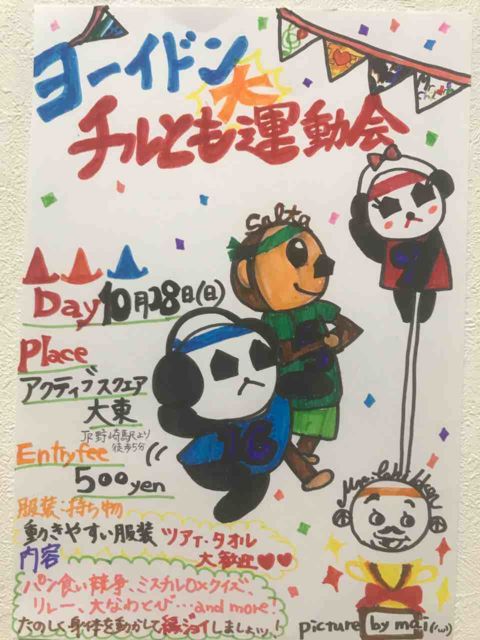 ヨーイドン
大
チルとも運動会
Salta
Day 10月28日(日)
Place
アクティブスクエア
大東
JR野崎駅より
徒歩5分
Entry fee
500yen
服装・持ち物
動きやすい服装 ツアT・タオル
大歓迎♥♥
内容
パン食い競争、ミスチル〇×クイズ、
リレー、大なわとび…and more!
たのしく身体を動かして縁ジョイしましょッ!
Mr.Children
picture by mai(・ω・)